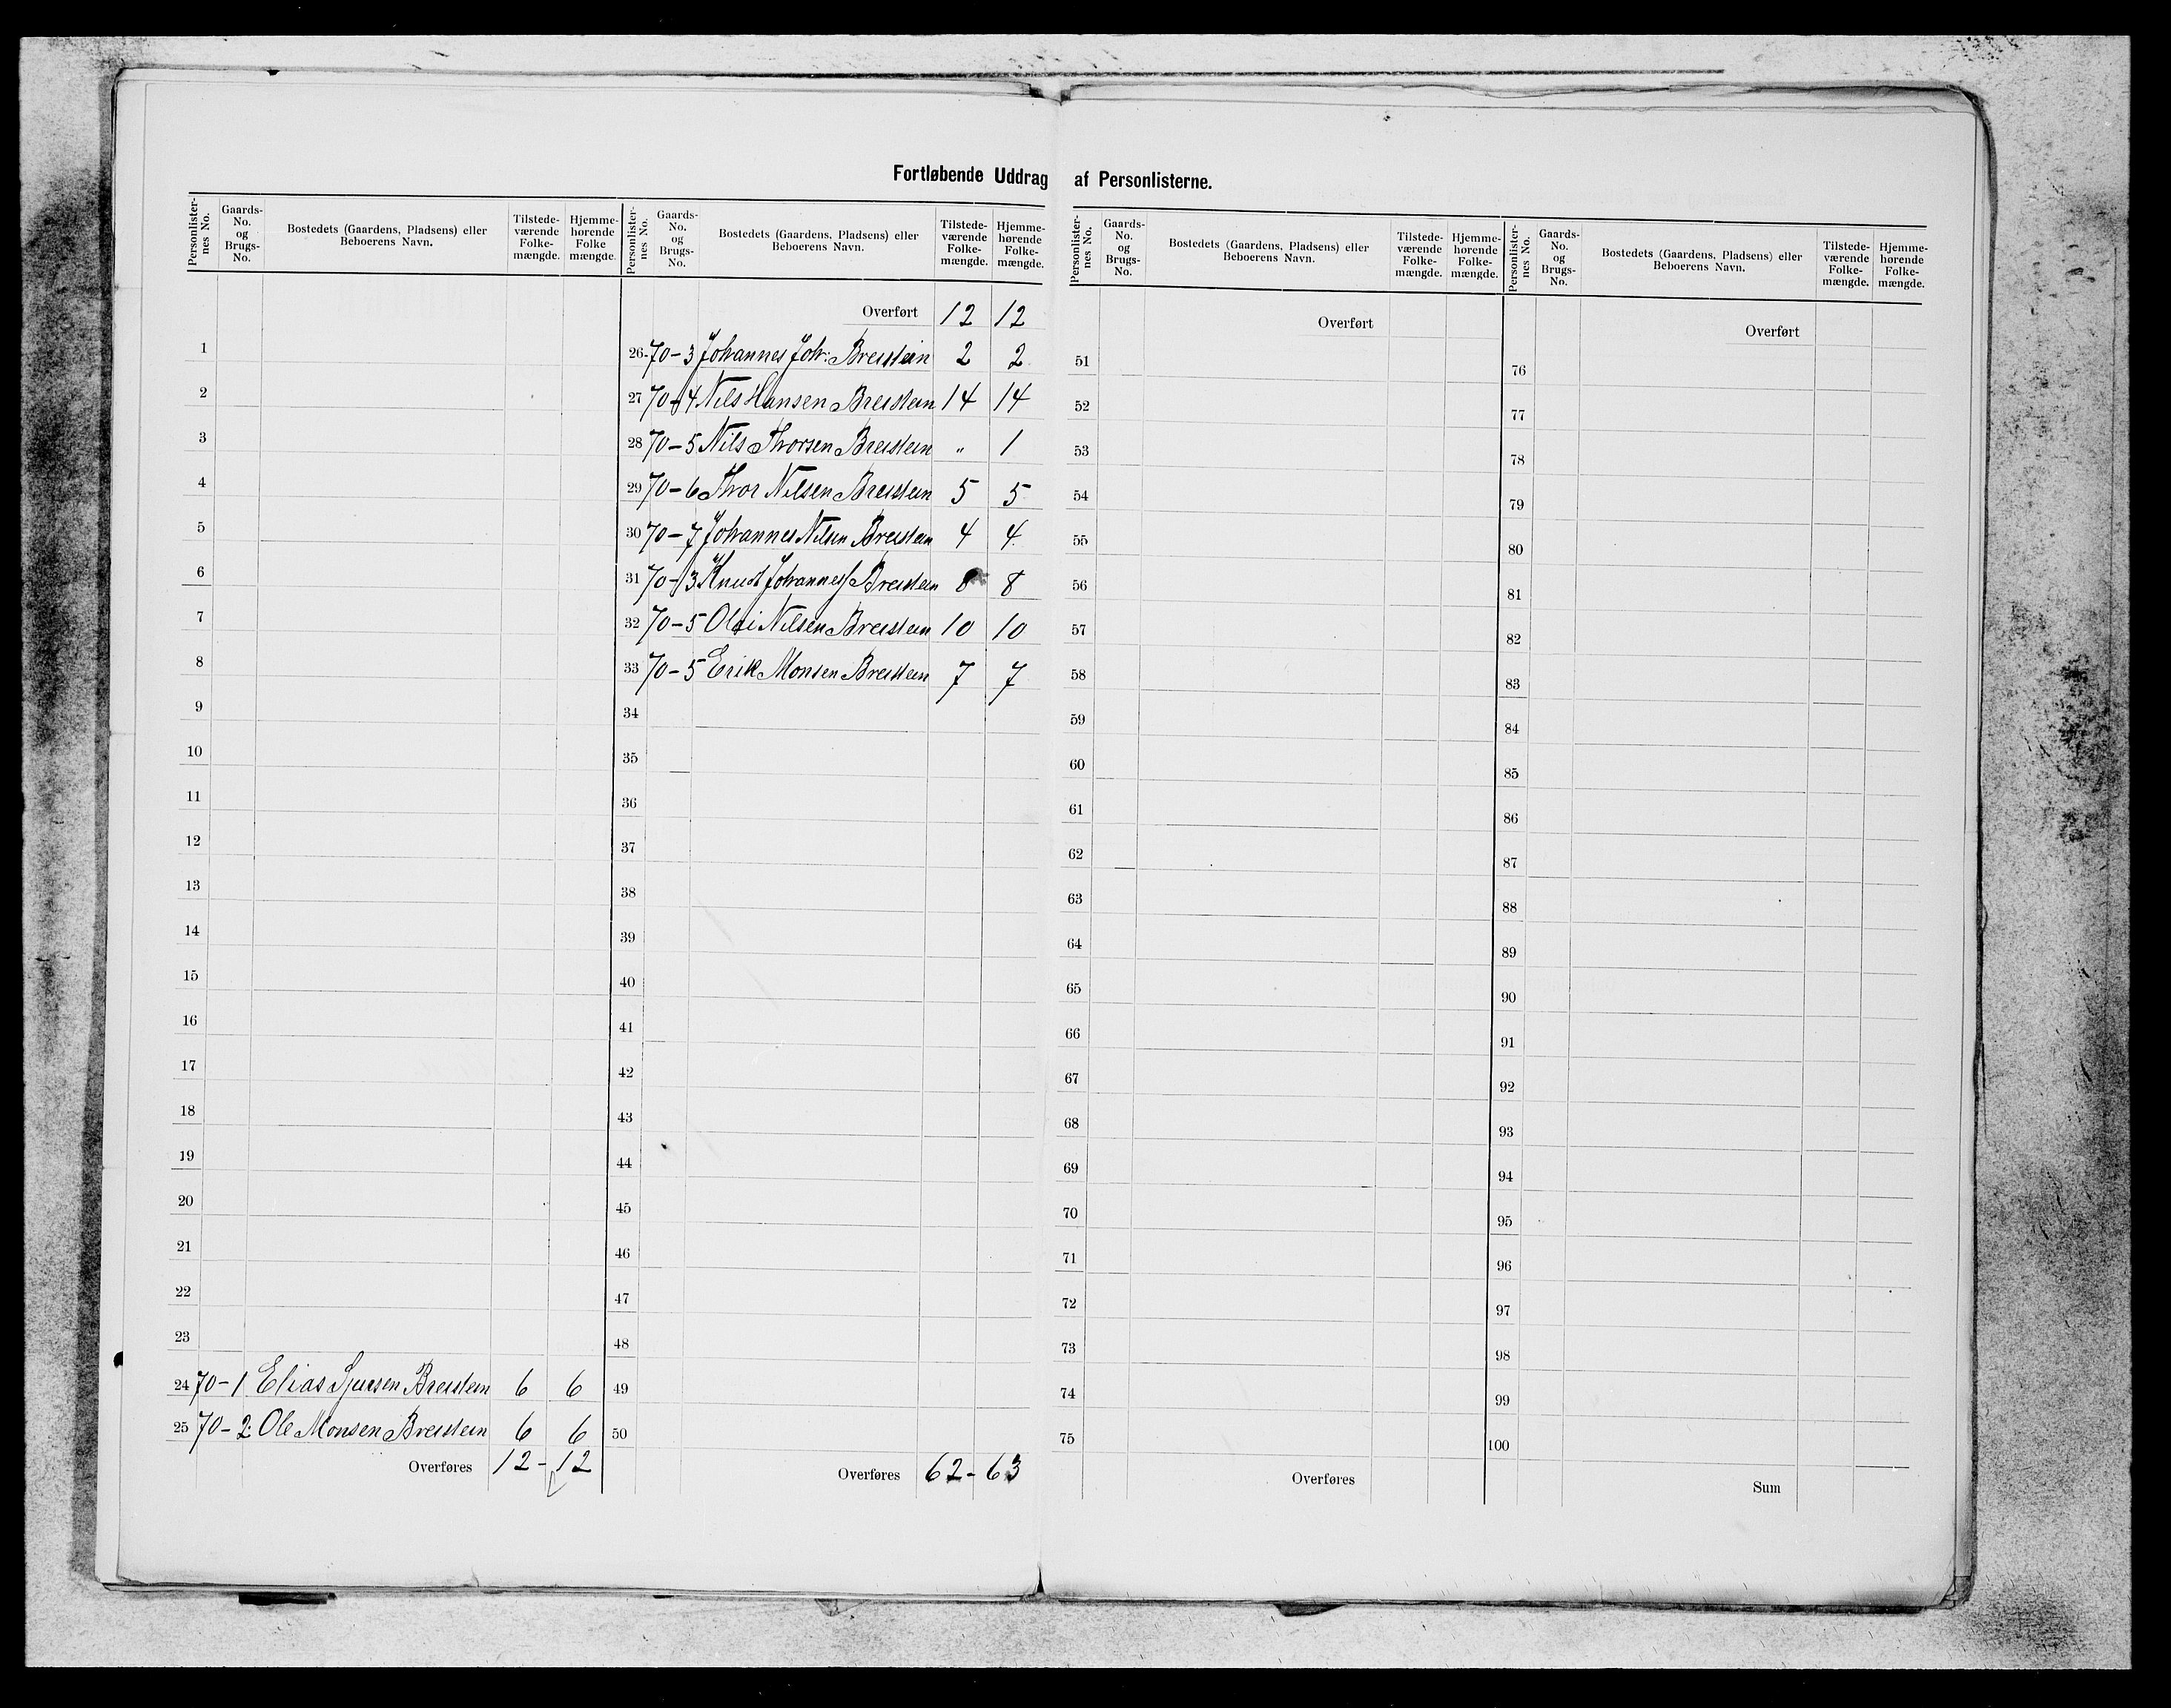 Fortløbende Uddrag af Personlisterne.
Personlister-nes No. Gaards-No. og Brugs-No. Bostedets (Gaardens, Pladsens) eller Beboerens Navn. Tilstede-værende Folke-mængde. Hjemme-hørende Folke mængde.
1
2
3
4
5
6
7
8
9
10
11
12
13
14
15
16
17
18
19
20
21
22
23
24 70-1 Elias Sjursen Breistein 6 6
25 70-2 Ole Monsen Breistein 6 6
Overføres 12 - 12
Personlister-nes No. Gaards-No. og Brugs-No. Bostedets (Gaardens, Pladsens) eller Beboerens Navn. Tilstede-værende Folke-mængde. Hjemme-hørende Folke-mængde.
Overført 12 12
26 70-3 Johannes Joh: Breistein 2 2
27 70-4 Nils Hansen Breistein 14 14
28 70-5 Nils Thorsen Breistein " 1
29 70-6 Thor Nilsen Breistein 5 5
30 70-7 Johannes Nilsen Breistein 4 4
31 70-3 Knud Johannes Breistein 8 8
32 70-5 Nilsen Breistein 10 10
33 70-5 Erik Monsen Breistein 7 7
34
35
36
37
38
39
40
41
42
43
44
45
46
47
48
49
50
Overføres 62 - 63
Personlister-nes No. Gaards-No. og Brugs-No. Bostedets (Gaardens, Pladsens) eller Beboerens Navn. Tilstede-værende Folke-mængde. Hjemme-hørende Folke-mængde.
Overført
51
52
53
54
55
56
57
58
59
60
61
62
63
64
65
66
67
68
69
70
71
72
73
74
75
Overføres
Personlister-nes No. Gaards-No. og Brugs-No. Bostedets (Gaardens, Pladsens) eller Beboerens Navn. Tilstede-værende Folke-mængde. Hjemme-hørende Folke-mængde.
Overført
76
77
78
79
80
81
82
83
84
85
86
87
88
89
90
91
92
93
94
95
96
97
98
99
100
Sum